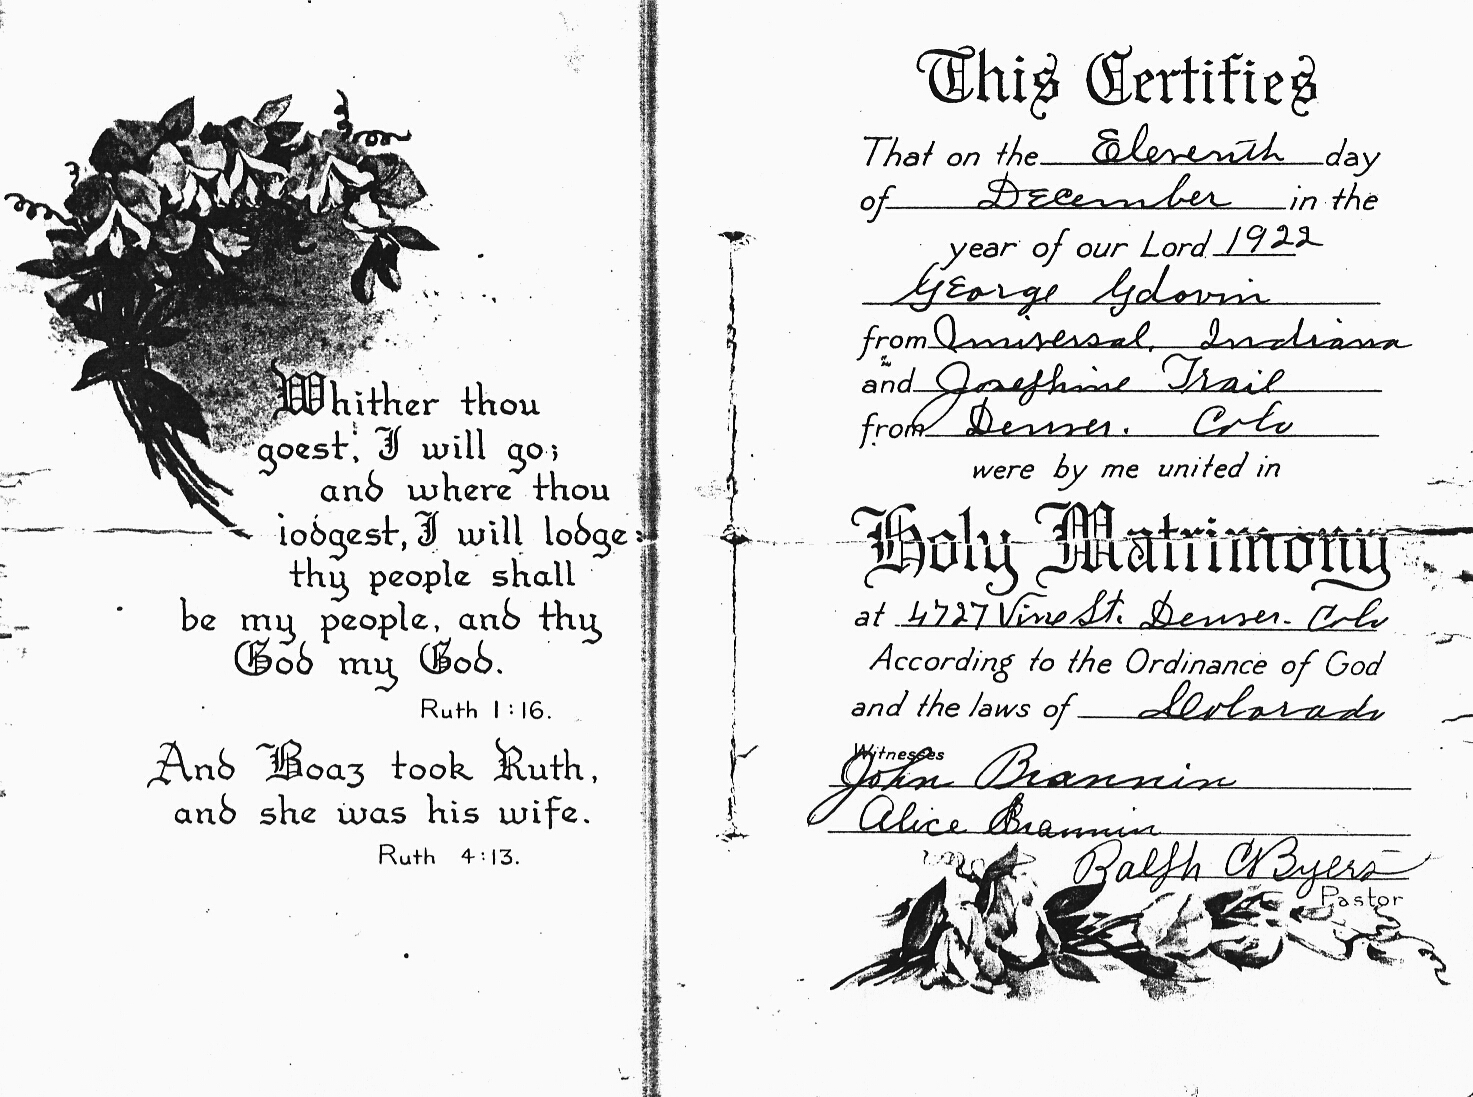 Whither thou
goest, I will go;
and where thou
lodgest, I will lodge:
thy people shall
be my people, and thy
God my God.
Ruth 1:16.
And Boaz took Ruth,
and she was his wife.
Ruth 4:13.
This Certifies
That on the Eleventh day
of December in the
year of our Lord 1922
George Gdovin
from Universal, Indiana
and Josephine Trail
from Denver. Colo
were by me united in
Holy Matrimony
at 4727 Vine St. Denver. Colo
According to the Ordinance of God
and the laws of Colorado
Witnesses
John Brannin
Alice Brannin
Ralph C Byers
Pastor